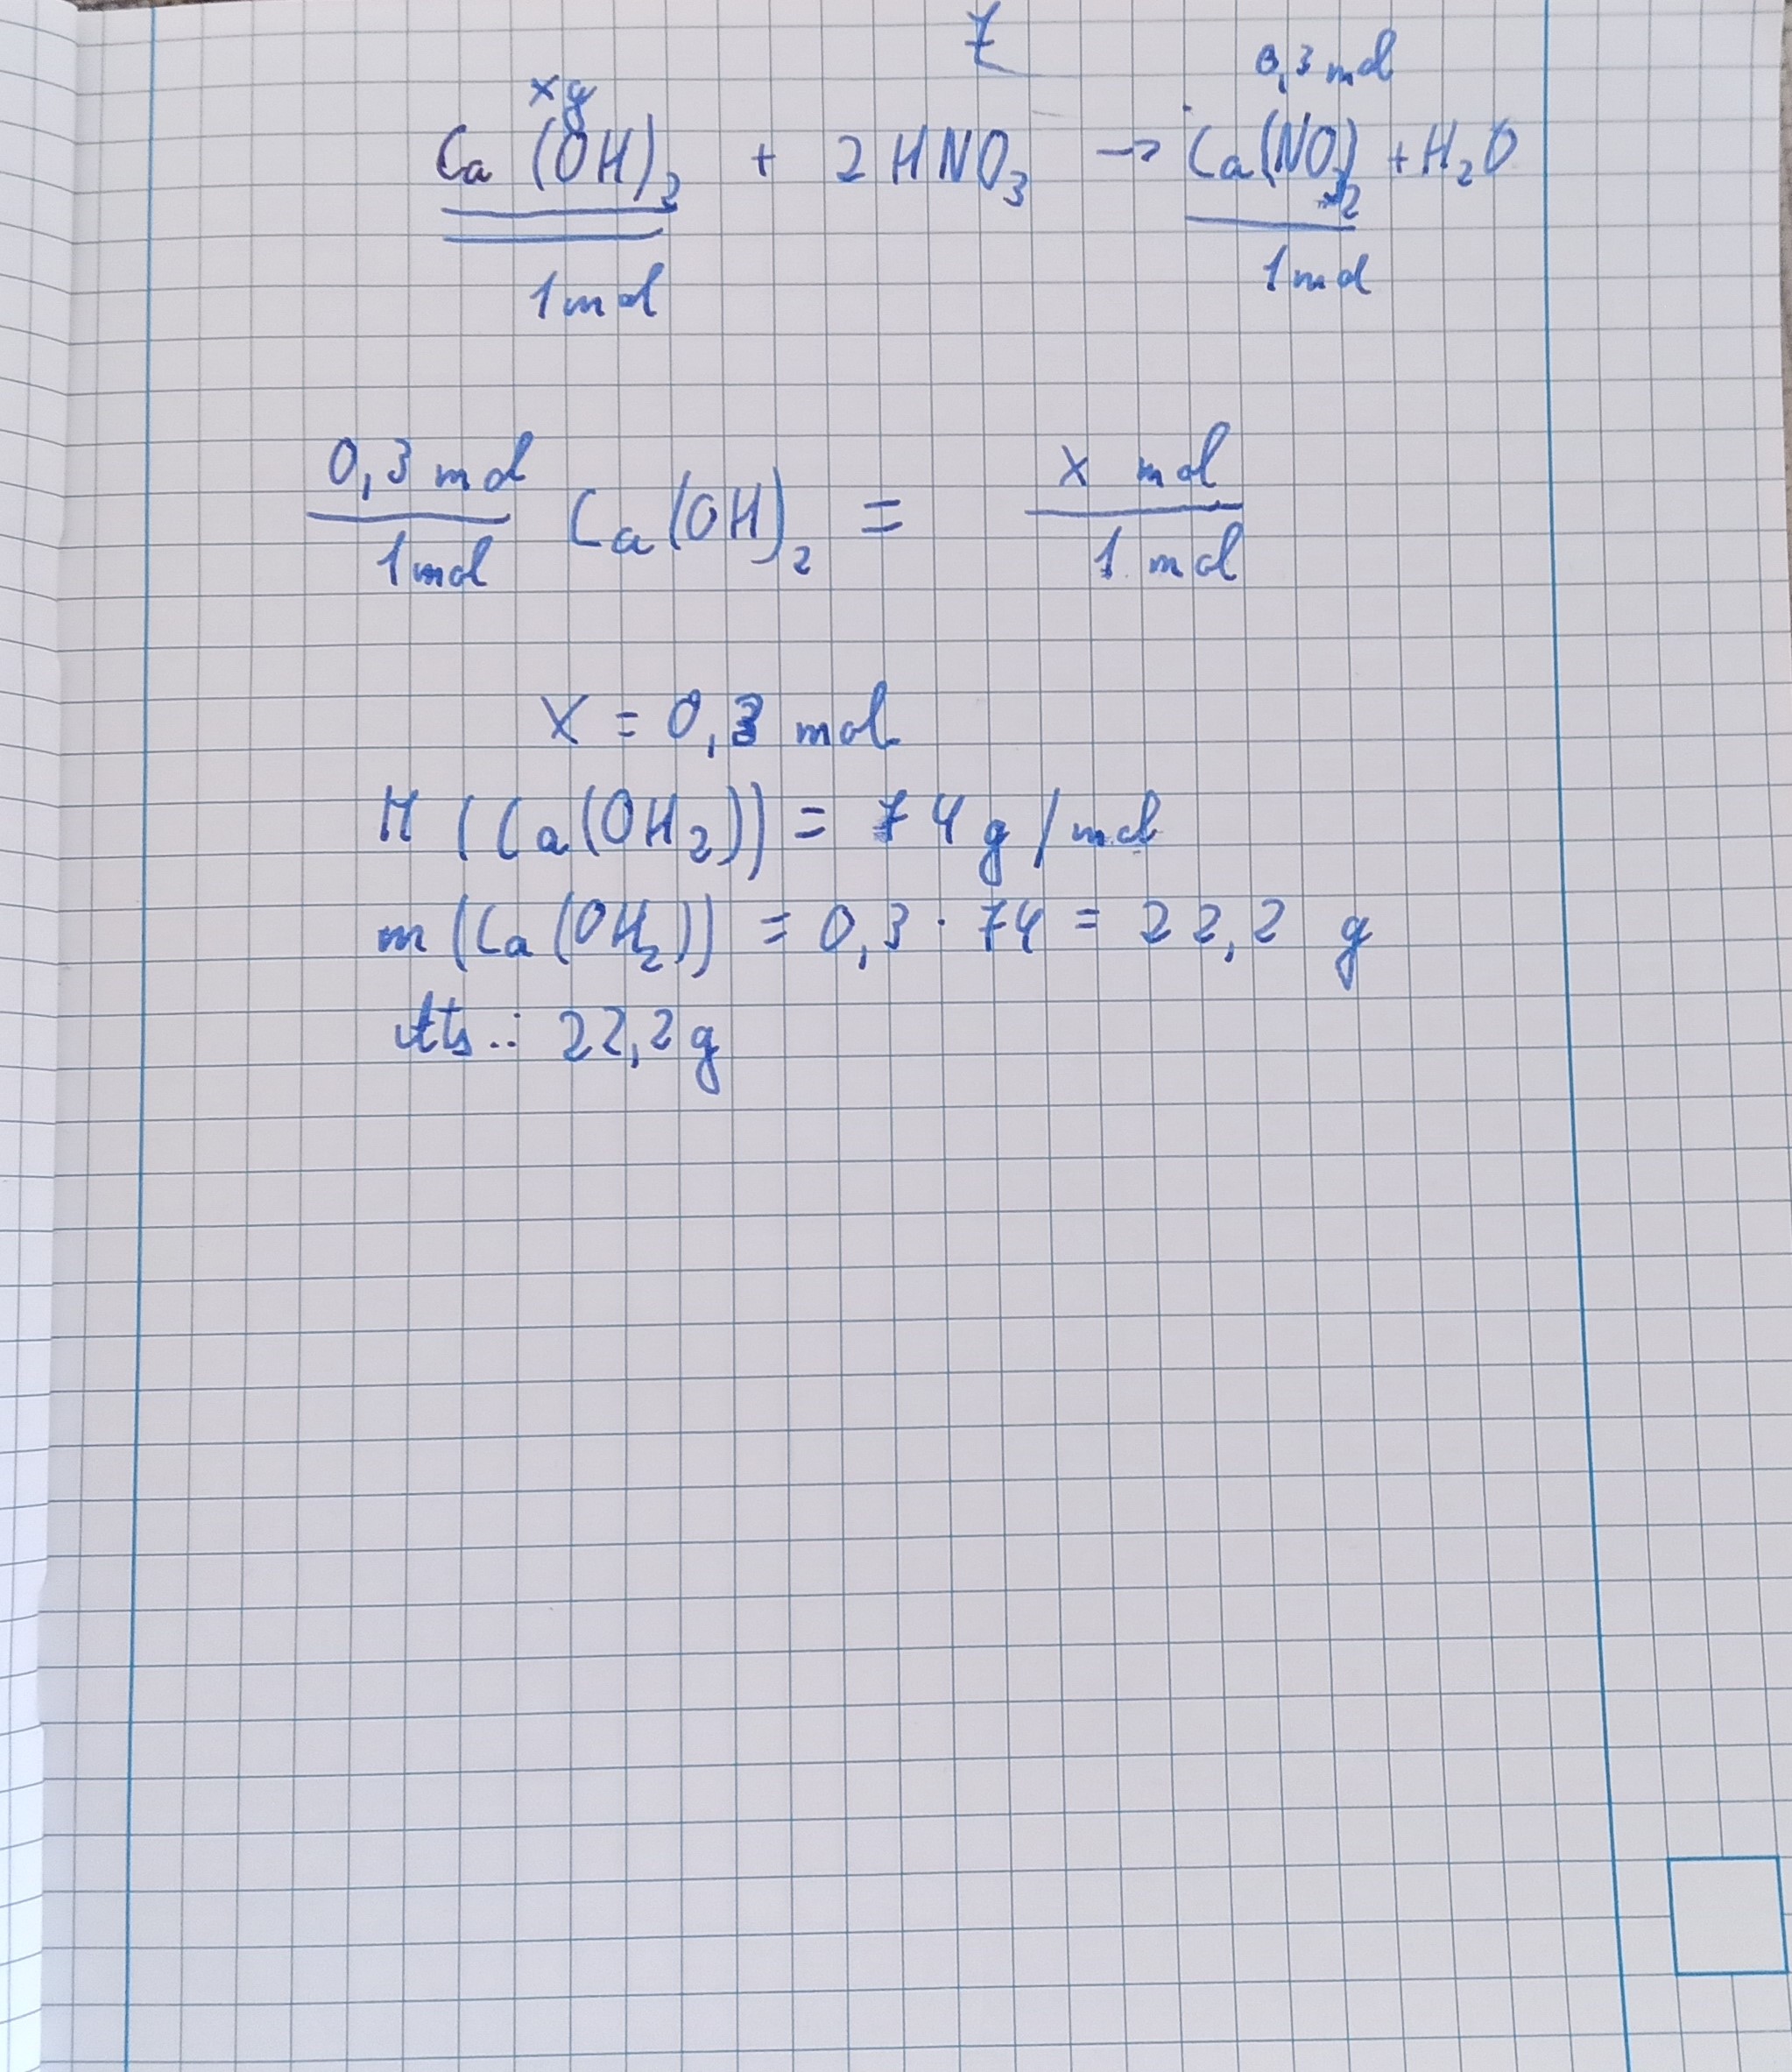 7
x g 0,3 mol
Ca (OH)₂ + 2 HNO₃ → Ca(NO₃)₂ + H₂O
1 mol 1 mol
0,3 mol / 1 mol Ca(OH)₂ = x mol / 1 mol
X = 0,3 mol
M (Ca(OH₂)) = 74 g/mol
m (Ca(OH₂)) = 0,3 · 74 = 22,2 g
Ats.: 22,2 g